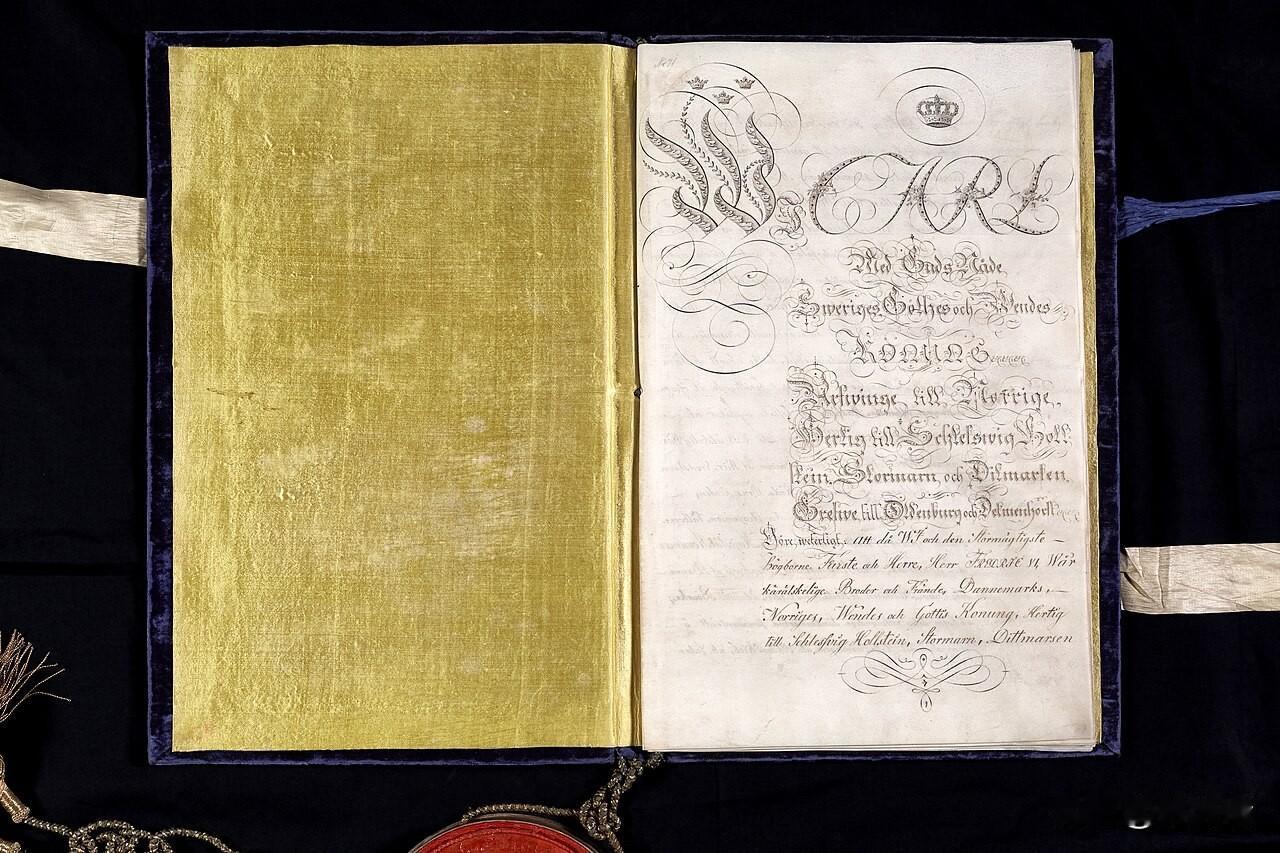 WI CARL
Med Guds Nåde
Sweriges Göthes och Wendes
KONUNG
Arfwinge till Norrige,
Hertig till Schleswig Holl-
stein, Stormarn, och Ditmarsen,
Grefwe till Oldenburg och Delmenhorst
Göre, weterligt, att då Wi och den Stormägtigste
högborne Furste och Herre, Herr FREDRIC VI, Wår
kärälskelige Broder och Frände, Dannemarks,
Norriges, Wendes och Göttis Konung, Hertig
till Schlesswig Hollstein, Stormarn, Dittmarsen